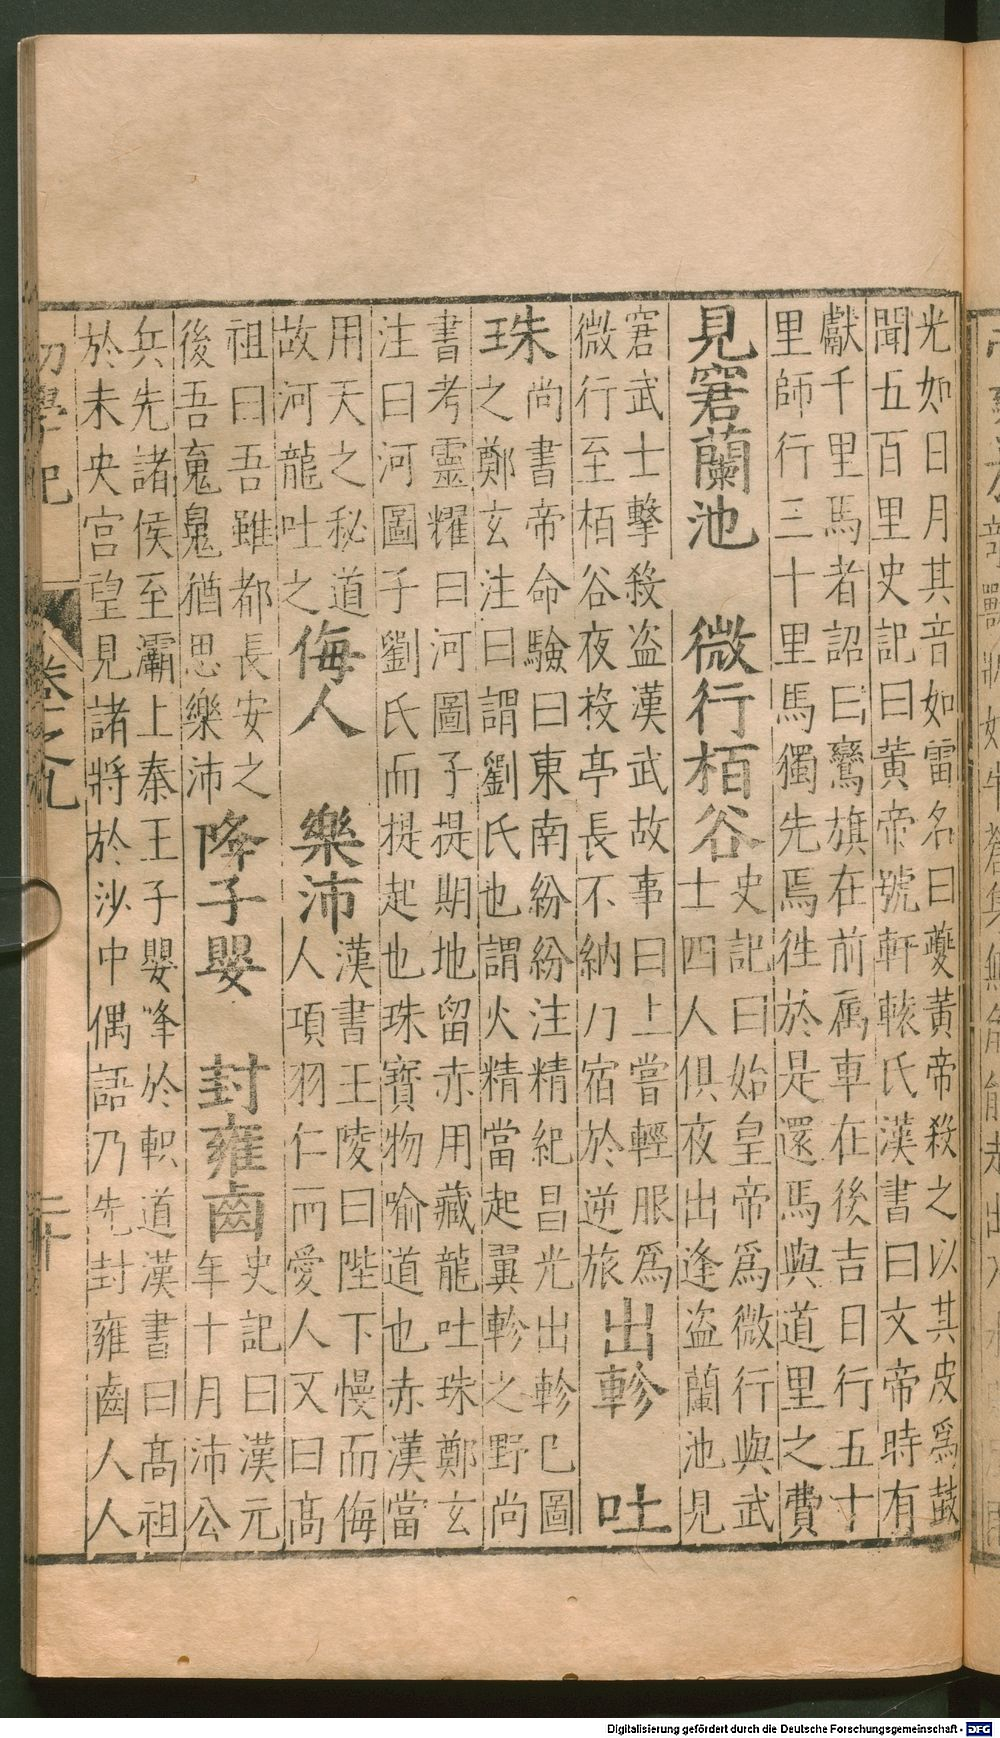 光如日月其音如雷名曰夔黃帝殺之以其皮爲鼓
聞五百里史記曰黃帝號軒轅氏漢書曰文帝時有
獻千里馬者詔曰鸞旗在前屬車在後吉日行五十
里師行三十里馬獨先焉徃於是還馬與道里之費
見窘蘭池 微行栢谷
史記曰始皇帝爲微行與武
士四人俱夜出逢盜蘭池見
窘武士擊殺盜漢武故事曰上嘗輕服爲
微行至栢谷夜投亭長不納乃宿於逆旅
出軫 吐
珠
尚書帝命驗曰東南紛紛注精紀昌光出軫巳圖
之鄭玄注曰謂劉氏也謂火精當起翼軫之野尚
書考靈耀曰河圖子提期地留赤用藏龍吐珠鄭玄
注曰河圖子劉氏而提起也珠寶物喻道也赤漢當
用天之秘道
故河龍吐之
侮人 樂沛
漢書王陵曰陛下慢而侮
人項羽仁而愛人又曰高
祖曰吾雖都長安之
後吾䰟鬼猶思樂沛
降子嬰 封雍齒
史記曰漢元
年十月沛公
兵先諸侯至灞上秦王子嬰降於軹道漢書曰高祖
於未央宮望見諸將於沙中偶語乃先封雍齒人人
初學記 卷之九 二十
Digitalisierung gefördert durch die Deutsche Forschungsgemeinschaft - DFG